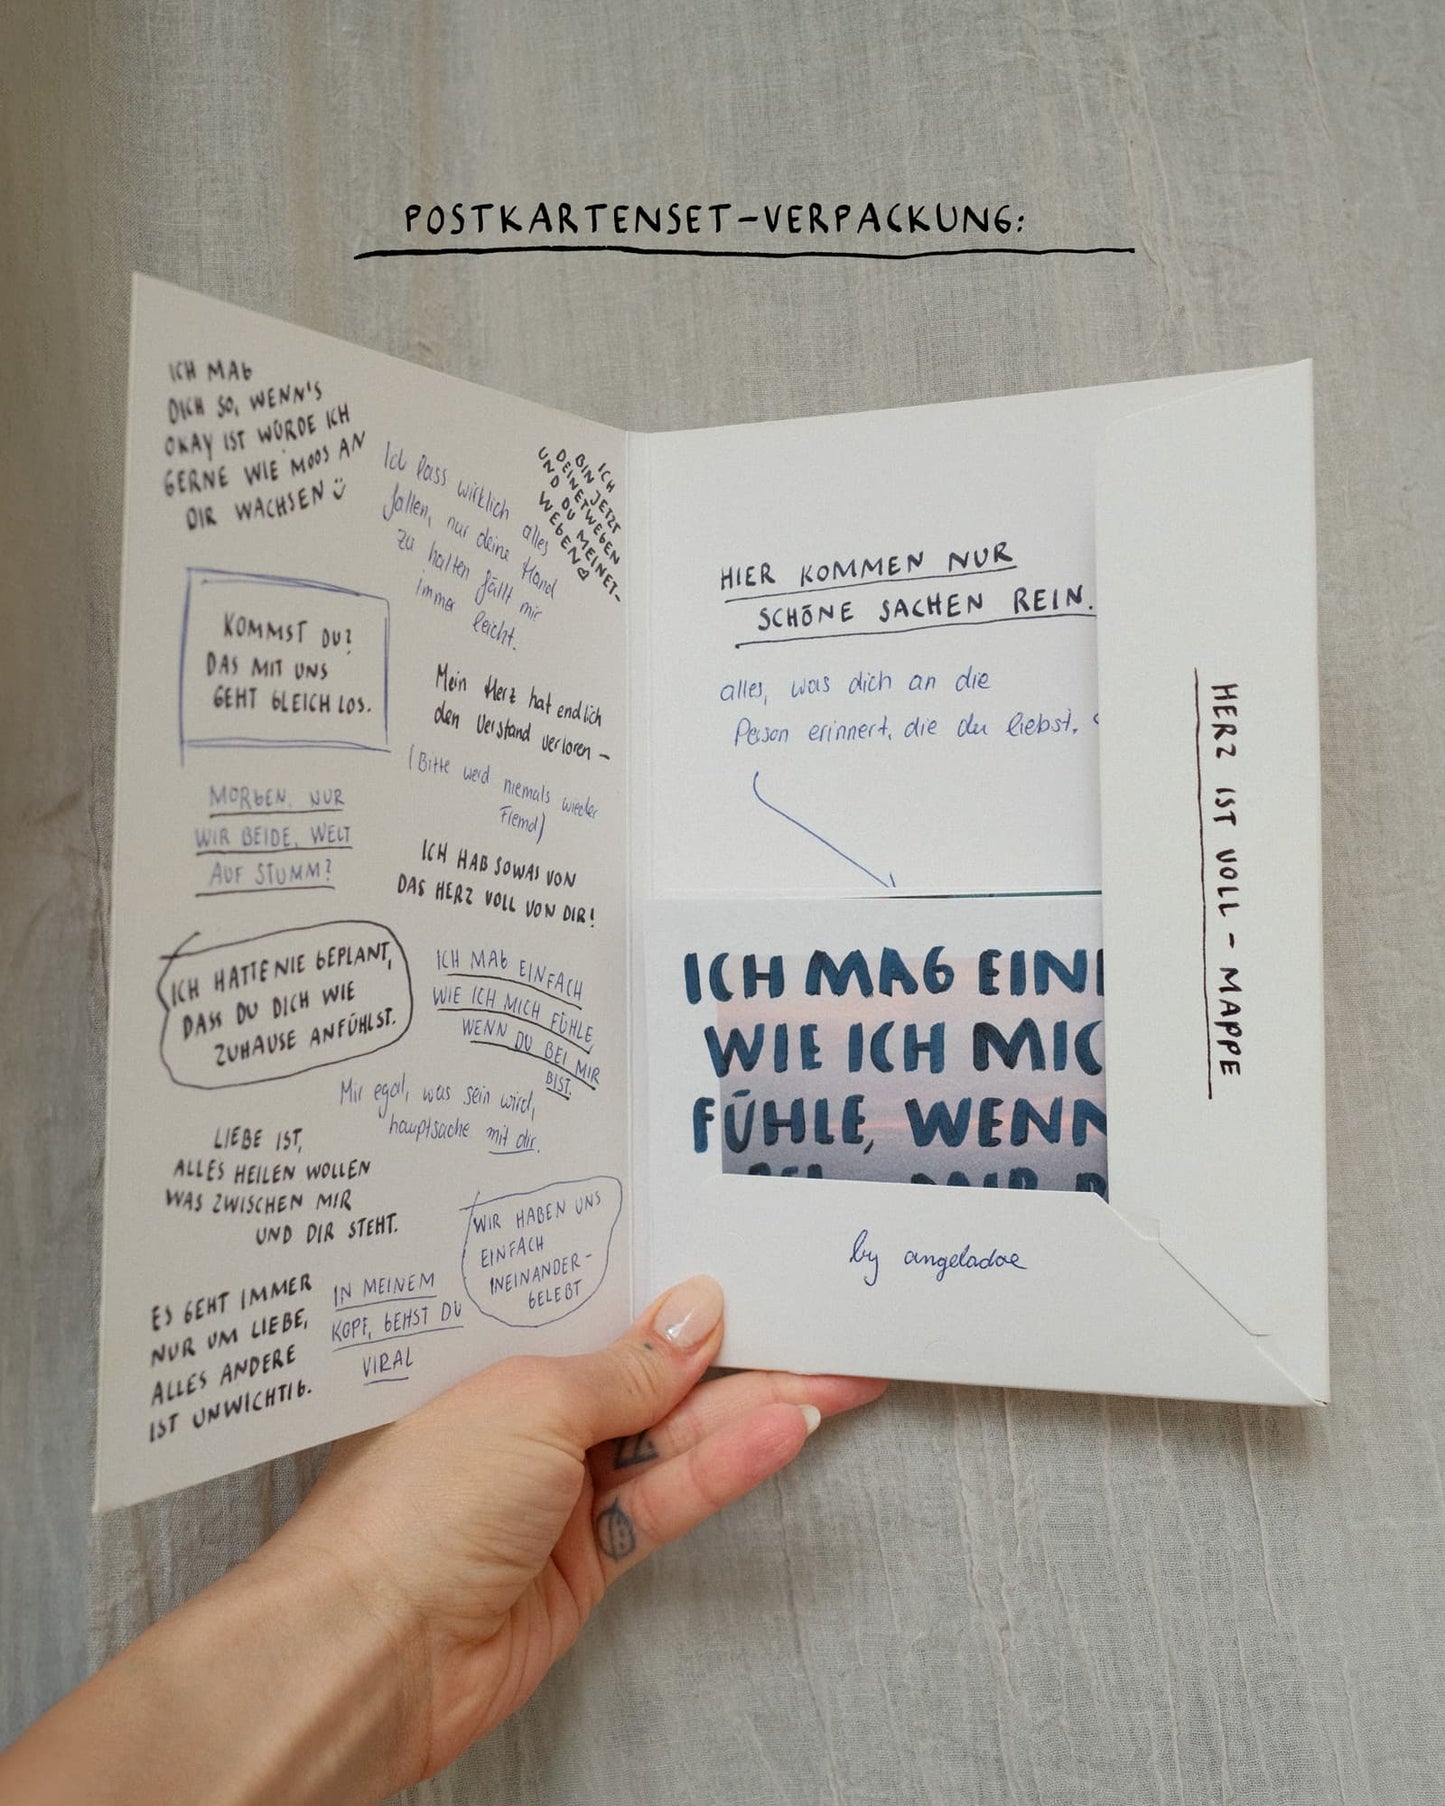 POSTKARTENSET-VERPACKUNG:
ICH MAG
DICH SO, WENN'S
OKAY IST WÜRDE ICH
GERNE WIE MOOS AN
DIR WACHSEN
Ich lass wirklich alles
fallen, nur deine Hand
zu halten fällt mir
immer leicht.
ICH
BIN JETZT
DEINETWEGEN
UND DU MEINET-
WEGEN
KOMMST DU?
DAS MIT UNS
GEHT GLEICH LOS.
Mein Herz hat endlich
den Verstand verloren –
(Bitte werd niemals wieder
Fremd)
MORGEN, NUR
WIR BEIDE, WELT
AUF STUMM?
ICH HAB SOWAS VON
DAS HERZ VOLL VON DIR!
ICH HATTE NIE GEPLANT,
DASS DU DICH WIE
ZUHAUSE ANFÜHLST.
ICH MAG EINFACH
WIE ICH MICH FÜHLE,
WENN DU BEI MIR
BIST.
Mir egal, was sein wird,
hauptsache mit dir.
LIEBE IST,
ALLES HEILEN WOLLEN
WAS ZWISCHEN MIR
UND DIR STEHT.
WIR HABEN UNS
EINFACH
INEINANDER-
GELEBT
ES GEHT IMMER
NUR UM LIEBE,
ALLES ANDERE
IST UNWICHTIG.
IN MEINEM
KOPF, GEHST DU
VIRAL
HIER KOMMEN NUR
SCHÖNE SACHEN REIN.
alles, was dich an die
Person erinnert, die du liebst.
ICH MAG EIN
WIE ICH MIC
FÜHLE, WENN
by angeladoe
HERZ IST VOLL - MAPPE